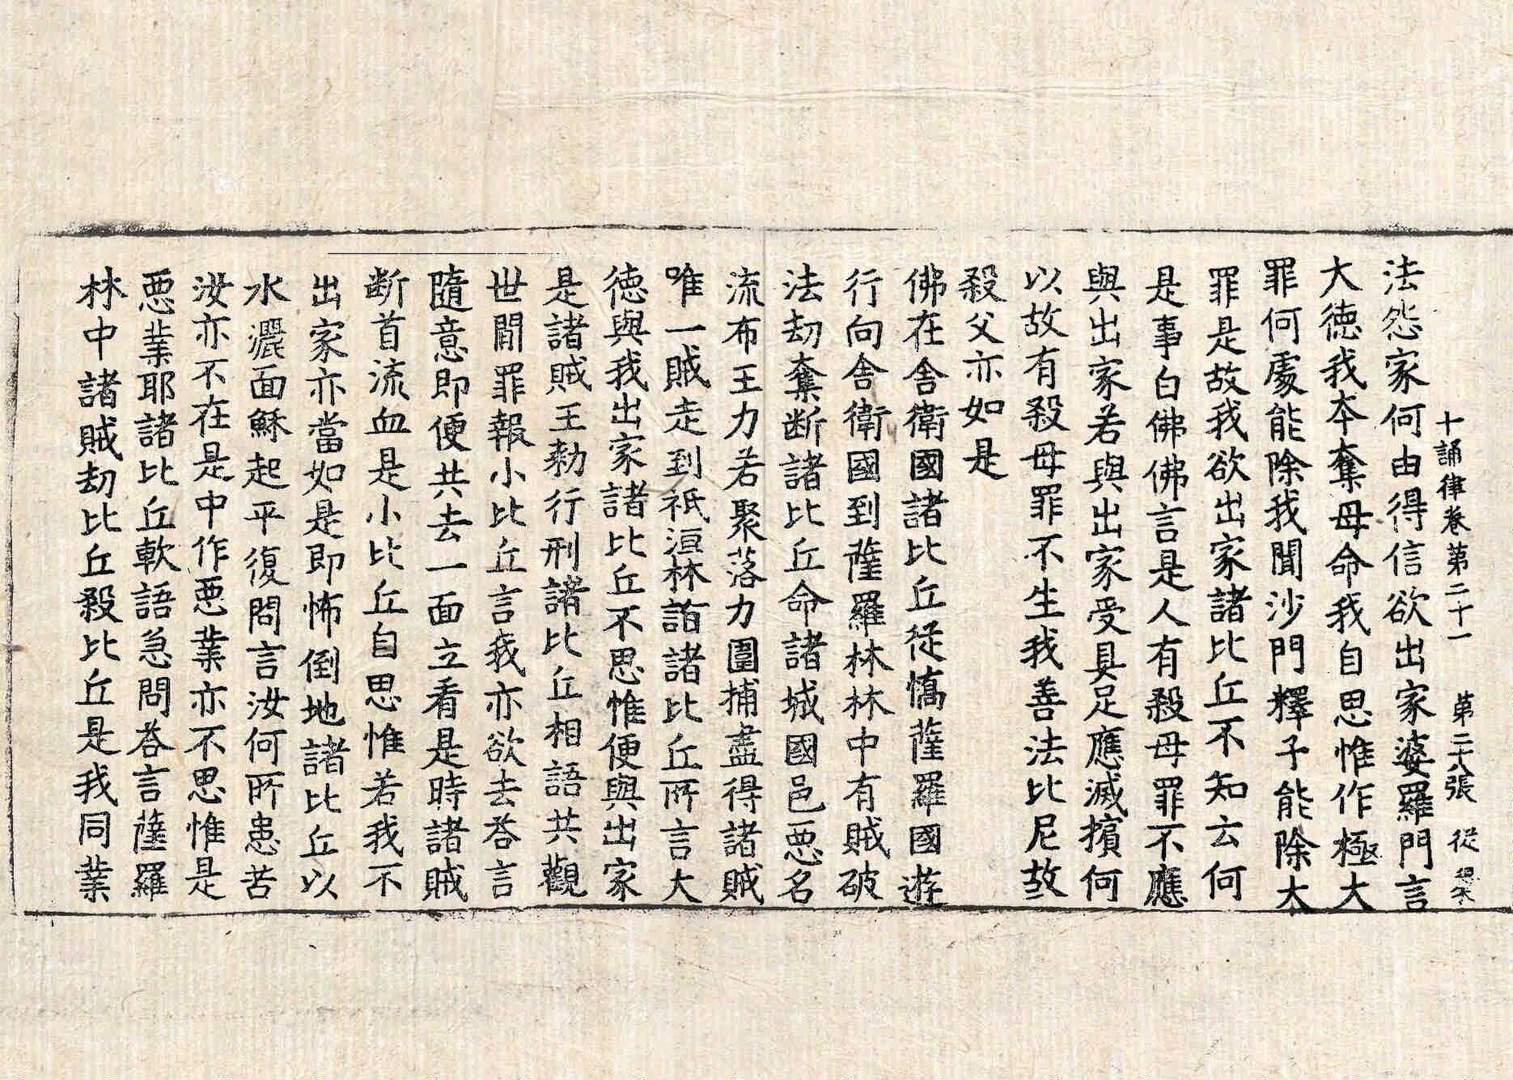 十誦律卷第二十一 第二十八張 從
法怨家何由得信欲出家婆羅門言
大德我本奪母命我自思惟作極大
罪何處能除我聞沙門釋子能除大
罪是故我欲出家諸比丘不知云何
是事白佛佛言是人有殺母罪不應
與出家若與出家受具足應滅擯何
以故有殺母罪不生我善法比尼故
殺父亦如是
佛在舍衛國諸比丘從憍薩羅國遊
行向舍衛國到薩羅林林中有賊破
法劫奪斷諸比丘命諸城國邑惡名
流布王力若聚落力圍捕盡得諸賊
唯一賊走到祇洹林詣諸比丘所言大
德與我出家諸比丘不思惟便與出家
是諸賊王勑行刑諸比丘相語共觀
世間罪報小比丘言我亦欲去荅言
隨意即便共去一面立看是時諸賊
斷首流血是小比丘自思惟若我不
出家亦當如是即怖倒地諸比丘以
水灑面穌起平復問言汝何所患苦
汝亦不在是中作惡業亦不思惟是
惡業耶諸比丘軟語急問荅言薩羅
林中諸賊劫比丘殺比丘是我同業